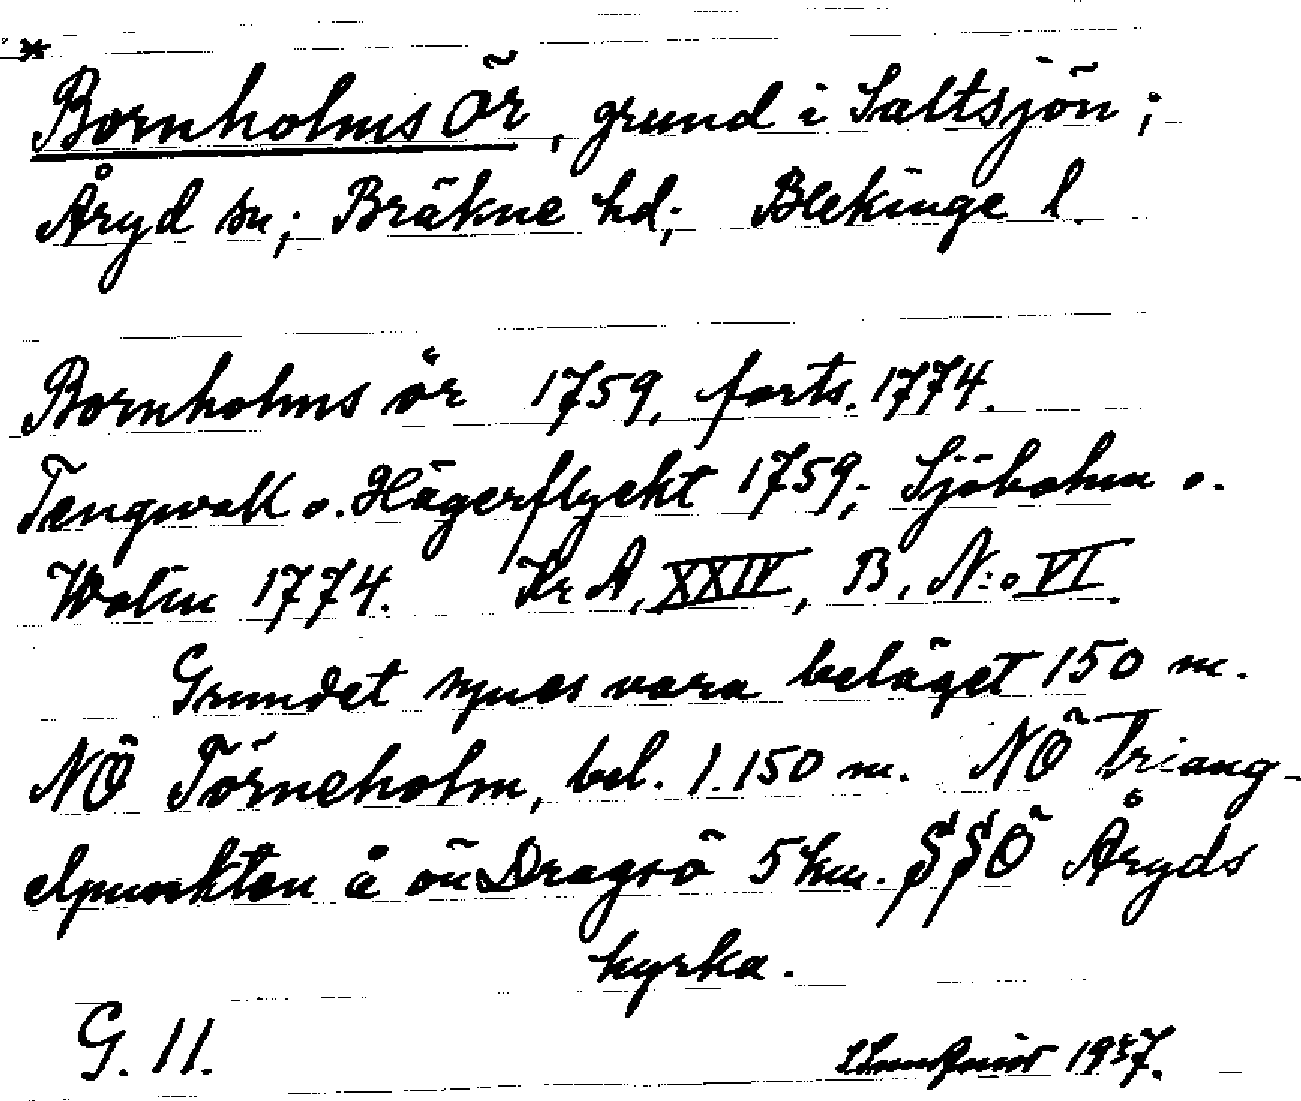 *
Bornholms Ör, grund i Saltsjön;
Åryd sn; Bräkne hd; Blekinge l.
Bornholms ör 1759, forts. 1774.
Tengwall o. Hägerflycht 1759; Sjöbohm o.
Wolin 1774. Kr A, XXIV, B, N:o VI.
Grundet synes vara beläget 150 m.
NÖ Törneholm, bel. 1.150 m. NÖ triang-
elpunkten å ön Dragsö 5 km. SSÖ Åryds
kyrka.
G. 11. 1937.